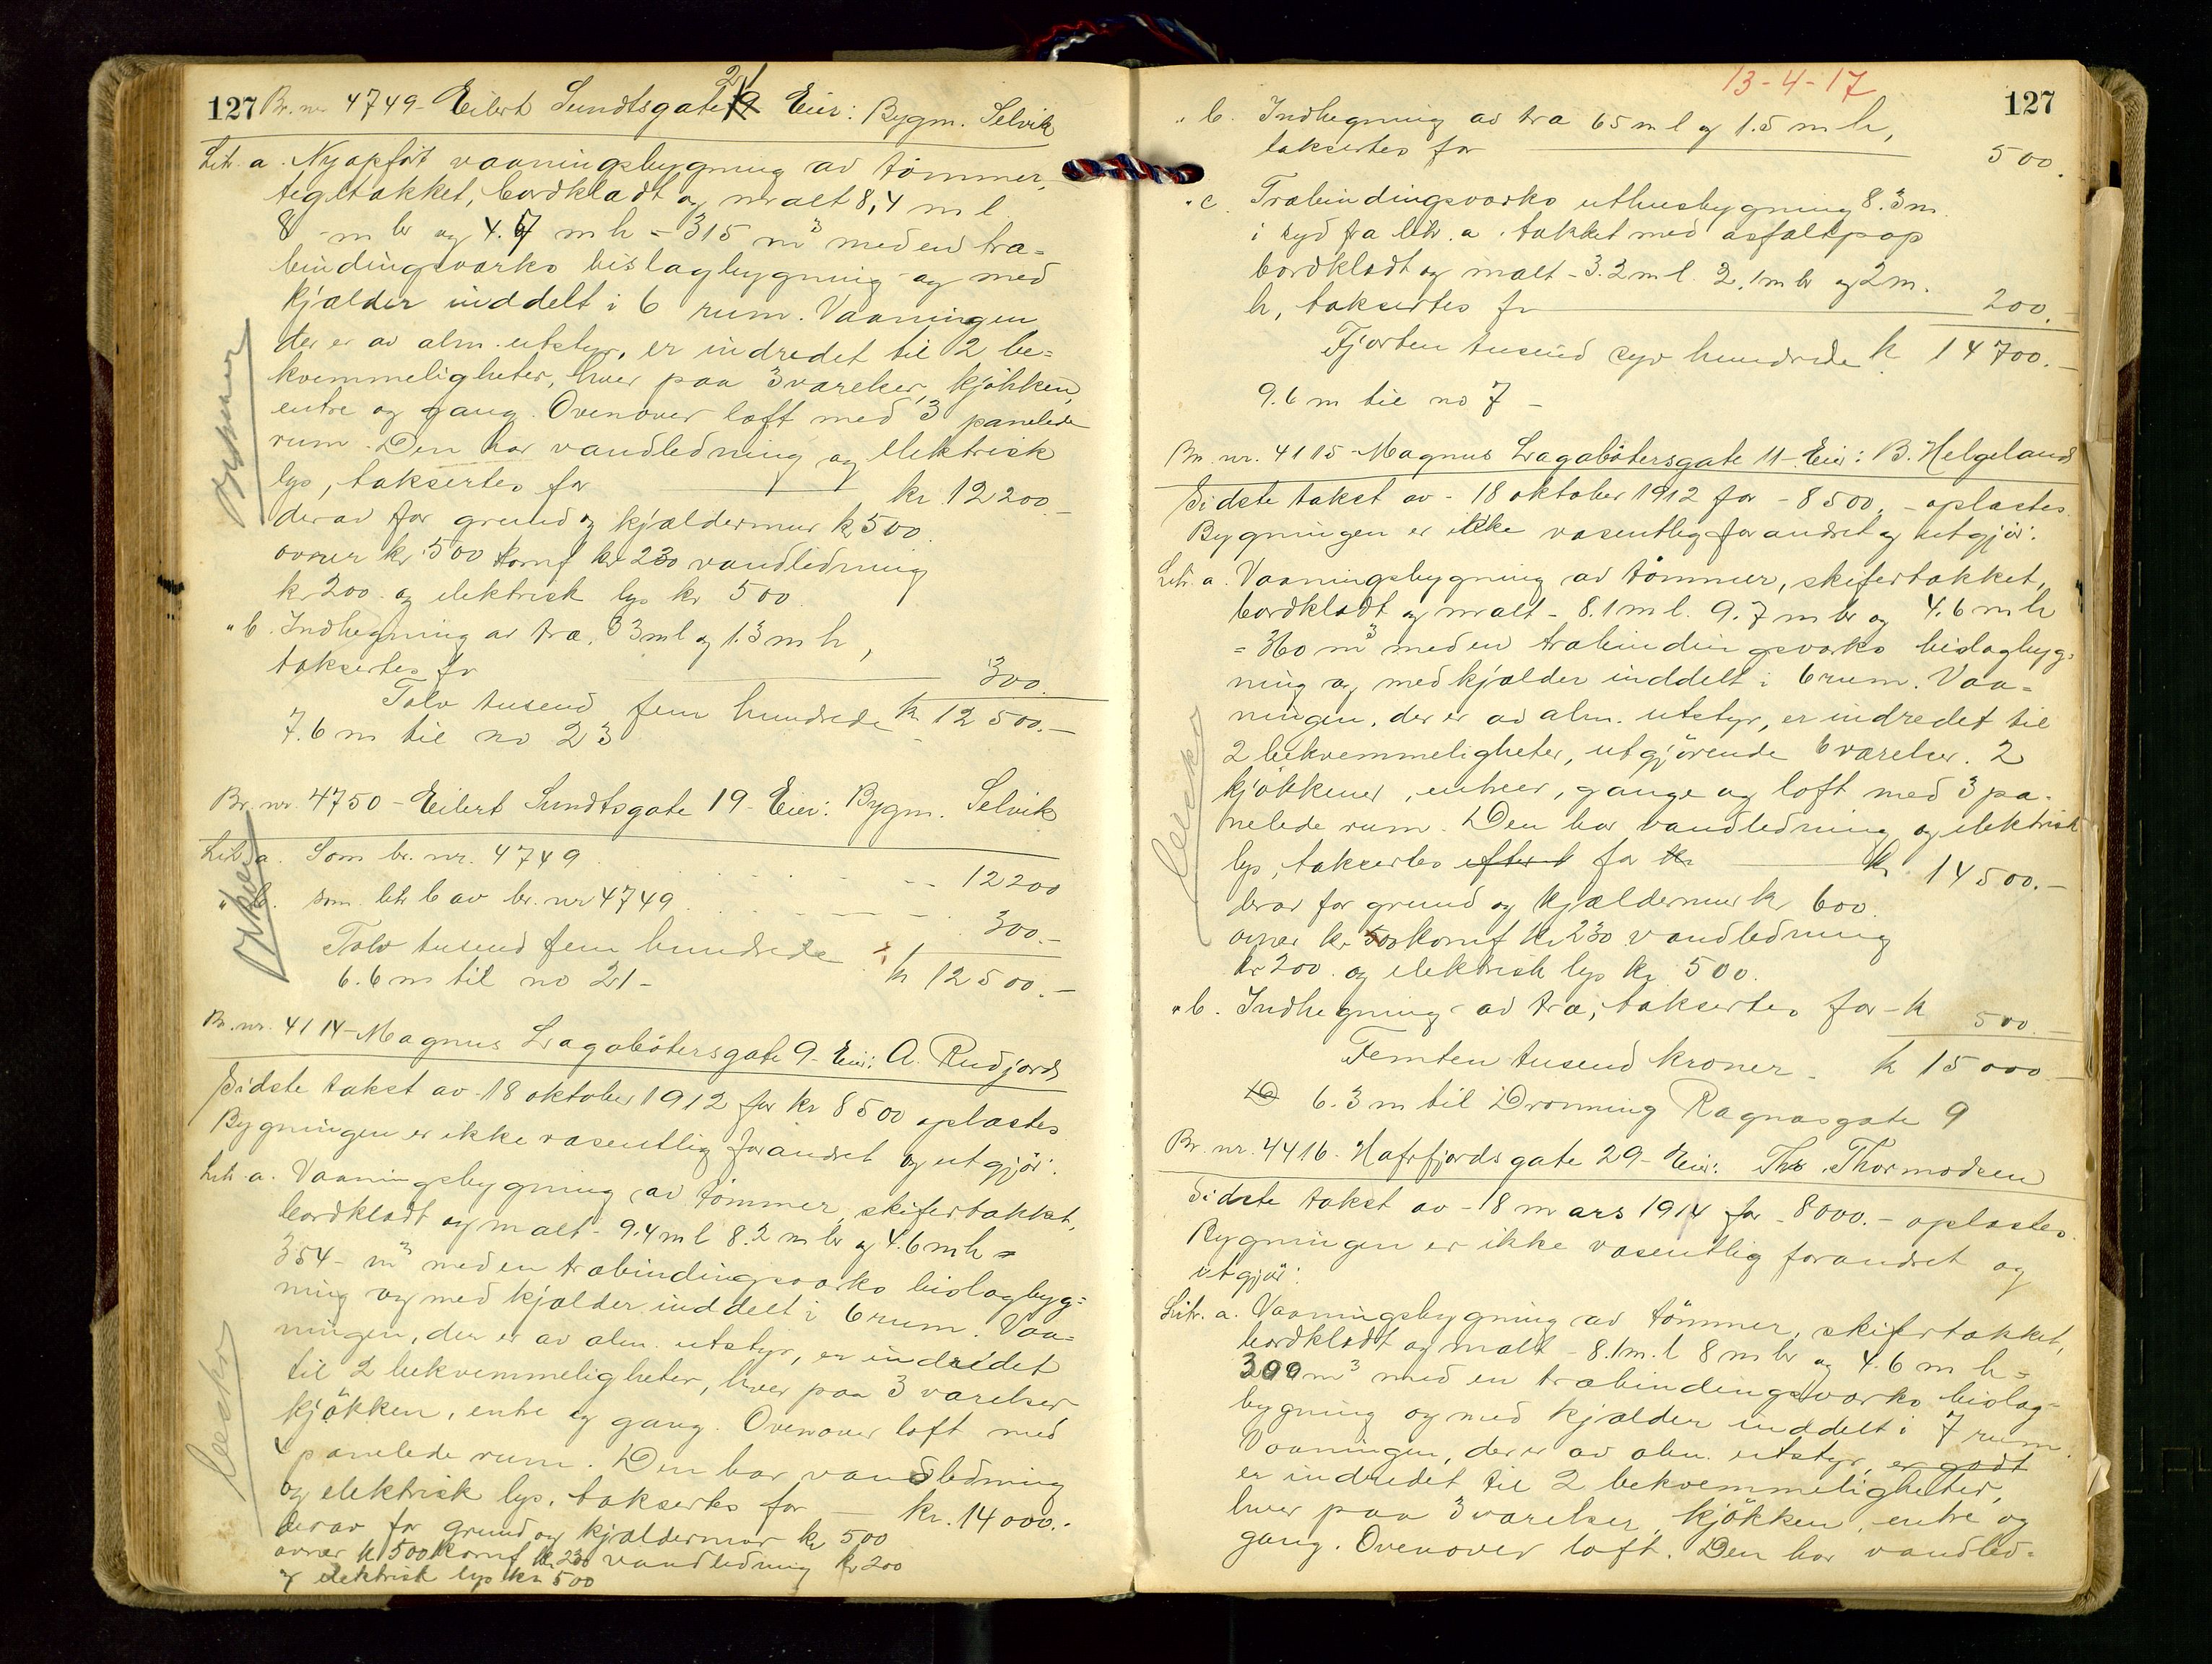 127 Br. nr 4749 - Eilert Sundtsgate 21 Eier: Bygm. Selvik
Litr. a. Nyopført vaaningsbygning av tömmer,
tegltakket, bordklædt og malt 8,4 m l
8 - m br og 4.7 m h = 315 m³ med en træ=
bindingsværks bislagbygning og med
kjælder inddelt i 6 rum. Vaaningen
der er av alm. utstyr, er indredet til 2 be=
kvemmeligheter, hver paa 3 værelser, kjökken,
entre og gang. Ovenover loft med 3 panelede
rum. Den har vandledning og elektrisk
lys, taksertes for kr 12 200.-
derav for grund og kjældermur kr 500.
ovner kr. 500 komf kr 230 vandledning
kr 200. og elektrisk lys kr 500
" b. Indhegning av træ, 33 m l og 1.3 m h,
taksertes for 300.
Tolv tusend fem hundrede kr 12 500.-
7.6 m til no 23
Br. nr. 4750 - Eilert Sundtsgate 19 - Eier: Bygm. Selvik
Litr. a. Som br. nr. 4749 12200
" b. som litr b av br. nr 4749 300.-
Tolv tusend fem hundrede kr 12500.-
6.6 m til no 21 -
Br. nr. 4114 - Magnus Lagabötersgate 9 - Eier: A. Rudjord
Sidste takst av 18 oktober 1912 for kr 8500 oplæstes
Bygningen er ikke væsentlig forandret og utgjör:
Litr. a. Vaaningsbygning av tömmer, skifertakket,
bordklædt og malt - 9.4 m l 8.2 m br og 4.6 m h =
354 - m³ med en træbindingsværks bislagbyg=
ning og med kjælder inddelt i 6 rum. Vaa=
ningen, der er av alm. utstyr, er indredet
til 2 bekvemmeligheter, hver paa 3 værelser,
kjökken, entre og gang. Ovenover loft med
4 panelede rum. Den har vandledning
og elektrisk lys, taksertes for kr. 14000.-
derav for grund og kjældermur kr 500
ovner kr 500 komf kr 230 vandledning kr 200
og elektrisk lys kr 500
13-4-17
127
" b. Indhegning av træ 65 m l og 1.5 m h,
taksertes for 500.
" c. Træbindingsværks uthusbygning 8.3 m.
i syd fra litr. a. takket med asfaltpap
bordklædt og malt - 3.2 m l. 2,1 m br og 2 m.
h, taksertes for 200.-
Fjorten tusend syv hundrede kr 14 700.-
9.6 m til no 7 -
Br. nr. 4115 - Magnus Lagabötersgate 11 - Eier: B. Helgeland
Sidste takst av - 18 oktober 1912 for - 8500. - oplæstes.
Bygningen er ikke væsentlig forandret og utgjör:
Litr. a. Vaaningsbygning av tömmer, skifertakket,
bordklædt og malt - 8.1 m l. 9.7 m br og 4.6 m h
= 360 m³ med en træbindingsværks bislagbyg=
ning og med kjælder inddelt i 6 rum. Vaa=
ningen, der er av alm. utstyr, er indredet til
2 bekvemmeligheter, utgjörende 6 værelser. 2
kjökkener, entreer, gange og loft med 3 pa=
nelede rum. Den har vandledning og elektrisk
lys, taksertes efter l for kr kr 14500.-
derav for grund og kjældermur kr 600.
ovner kr 500 komf kr 230 vandledning
kr 200. og elektrisk lys kr 500.
" b. Indhegning av træ, taksertes for - kr 500.-
Femten tusend kroner - kr 15 000 -
6.3 m til Dronning Ragnasgate 9
Br. nr. 4416. Hafrsfjordsgate 29 - Eier: Ths. Thormodsen
Sidste takst av - 18 mars 1914 for - 8000.- oplæstes.
Bygningen er ikke væsentlig forandret og
utgjör:
Litr. a. Vaaningsbygning av tömmer, skifertakket,
bordklædt og malt - 8.1 m. l 8 m br og 4.6 m h =
300 m³ med en træbindingsværks bislag=
bygning og med kjælder inddelt i 7 rum.
Vaaningen, der er av alm. utstyr, er godt
er indredet til 2 bekvemmeligheter,
hver paa 3 værelser, kjökken, entre og
gang. Ovenover loft. Den har vandled=